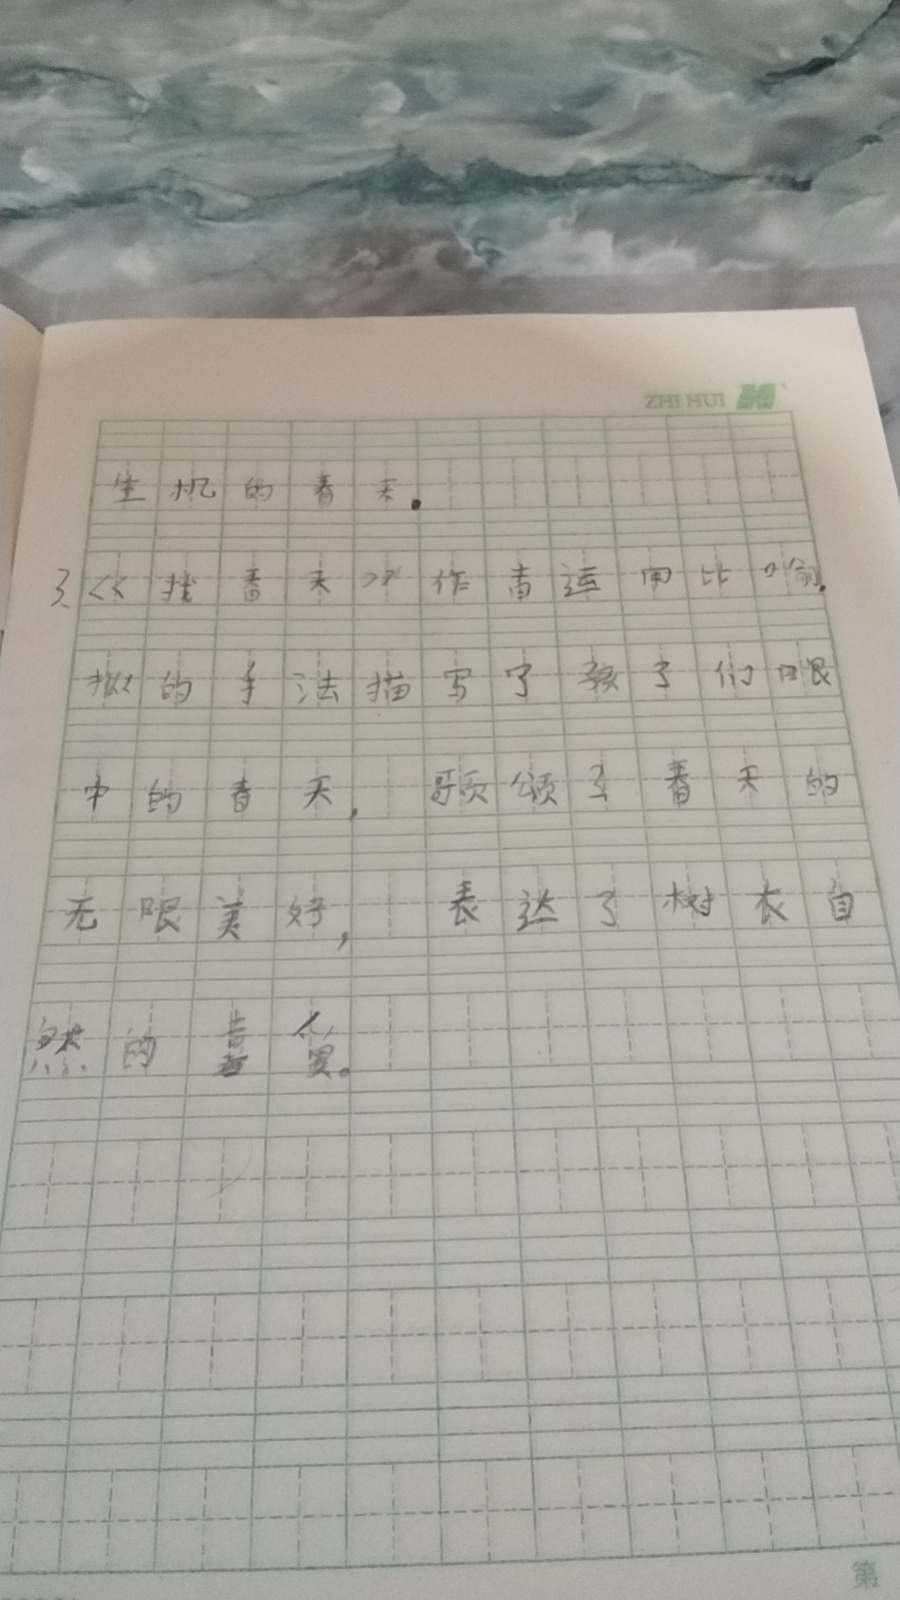 ZHI HUI
生机的春天.
3、《找春天》作者运用比喻.
拟的手法描写了孩子们眼
中的春天, 歌颂了春天的
无限美好, 表达了树衣自
然的喜
第